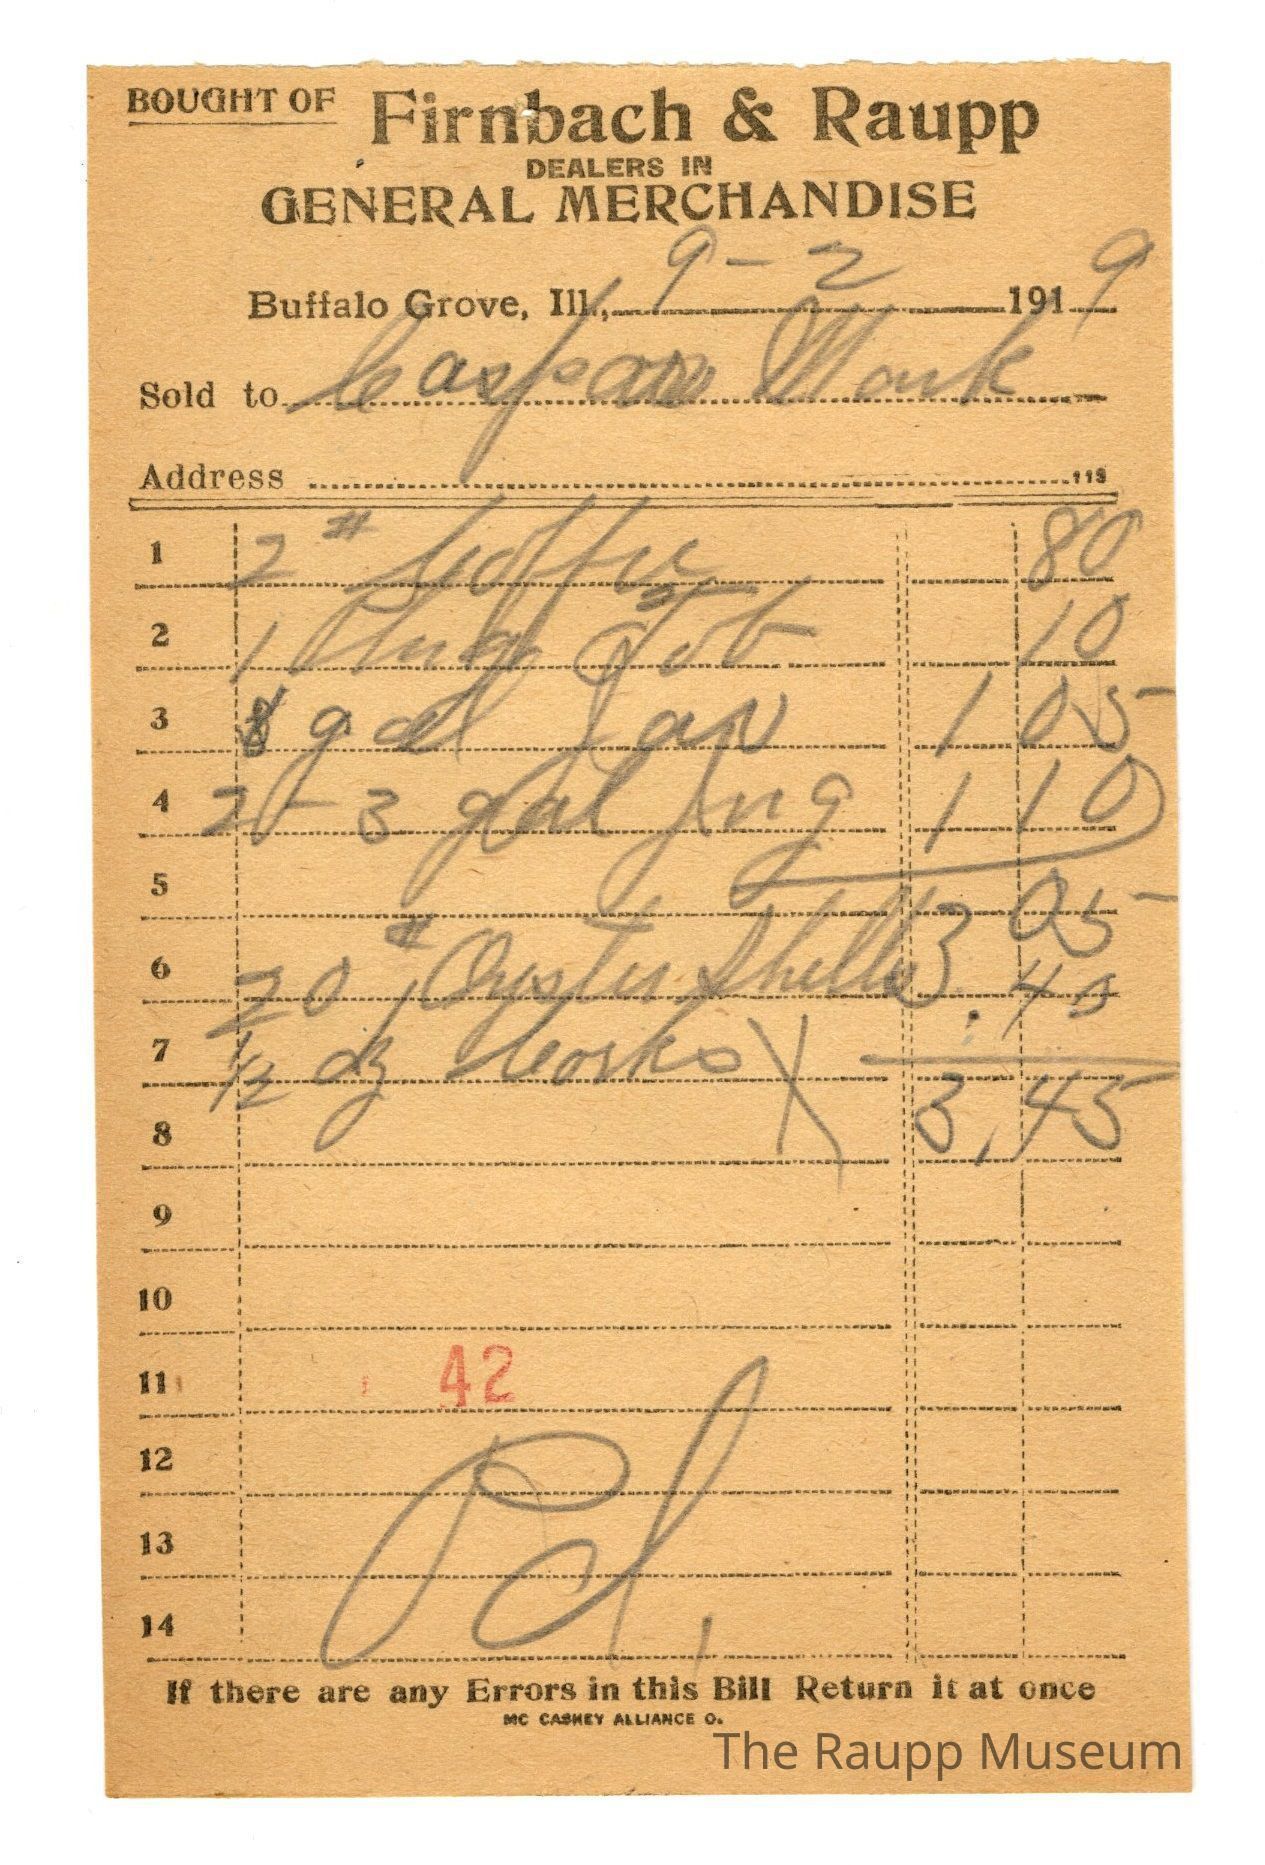 BOUGHT OF Firnbach & Raupp
DEALERS IN
GENERAL MERCHANDISE
Buffalo Grove, Ill., 9-2 1919
Sold to Caspar Monk
Address 113
1 2 # Coffee 80
2 1 Plug Tob 10
3 gal 1 05
4 2-3 gal Jug 1 10
5 3.05
6 20 # Oyster Shells .40
7 1/2 dz Corks X
8 3,45
9
10
11 42
12
13 Pd,
14
If there are any Errors in this Bill Return it at once
MC CASKEY ALLIANCE O.
The Raupp Museum